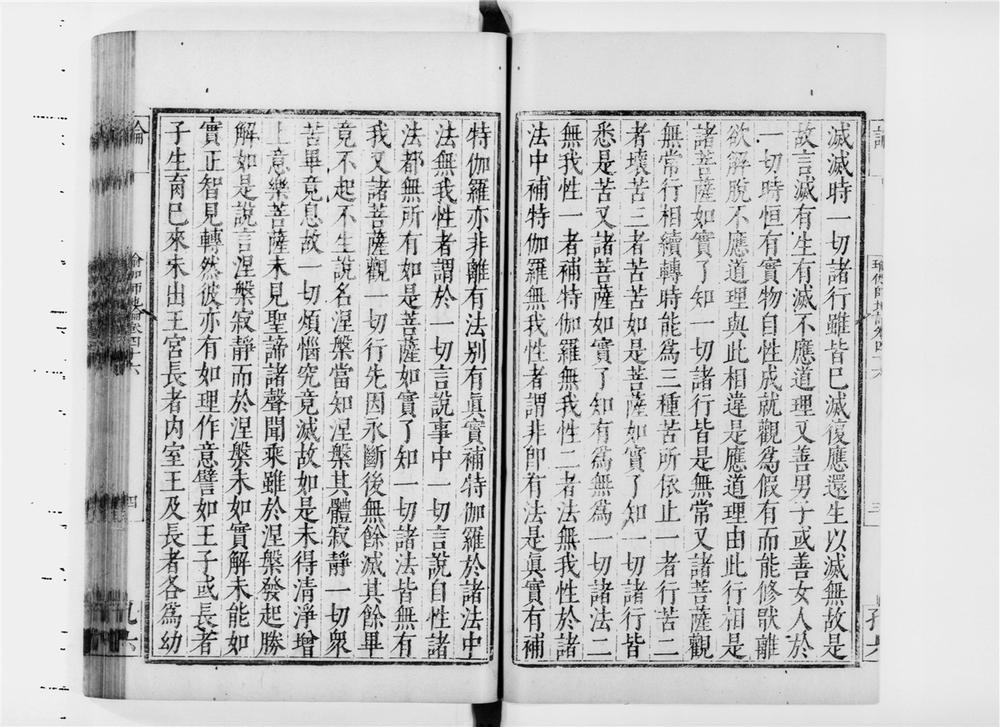 滅滅時一切諸行雖皆已滅復應還生以滅無故是
故言滅有生有滅不應道理又善男子或善女人於
一切時恒有實物自性成就觀爲假有而能修歌離
欲解脫不應道理與此相違是應道理由此行相是
諸菩薩如實了知一切諸行皆是無常又諸菩薩觀
無常行相續轉時能爲三種苦所依止一者行苦二
者壞苦三者苦苦如是菩薩如實了知一切諸行皆
悉是苦又諸菩薩如實了知有爲無爲一切諸法二
無我性一者補特伽羅無我性二者法無我性於諸
法中補特伽羅無我性者謂非即有法是眞實有補
特伽羅亦非離有法別有眞實補特伽羅於諸法中
法無我性者謂於一切言說事中一切言說自性諸
法都無所有如是菩薩如實了知一切諸法皆無有
我又諸菩薩觀一切行先因永斷後無餘滅其餘畢
竟不起不生說名涅槃當知涅槃其體寂靜一切衆
苦畢竟息故一切煩惱究竟滅故如是未得清淨增
上意樂菩薩未見聖諦諸聲聞乘雖於涅槃發起勝
解如是說言涅槃寂靜而於涅槃未如實解未能如
實正智見轉然彼亦有如理作意譬如王子或長者
子生育已來未出王宮長者內室王及長者各爲幼
論
瑜伽師地論卷四十六
四